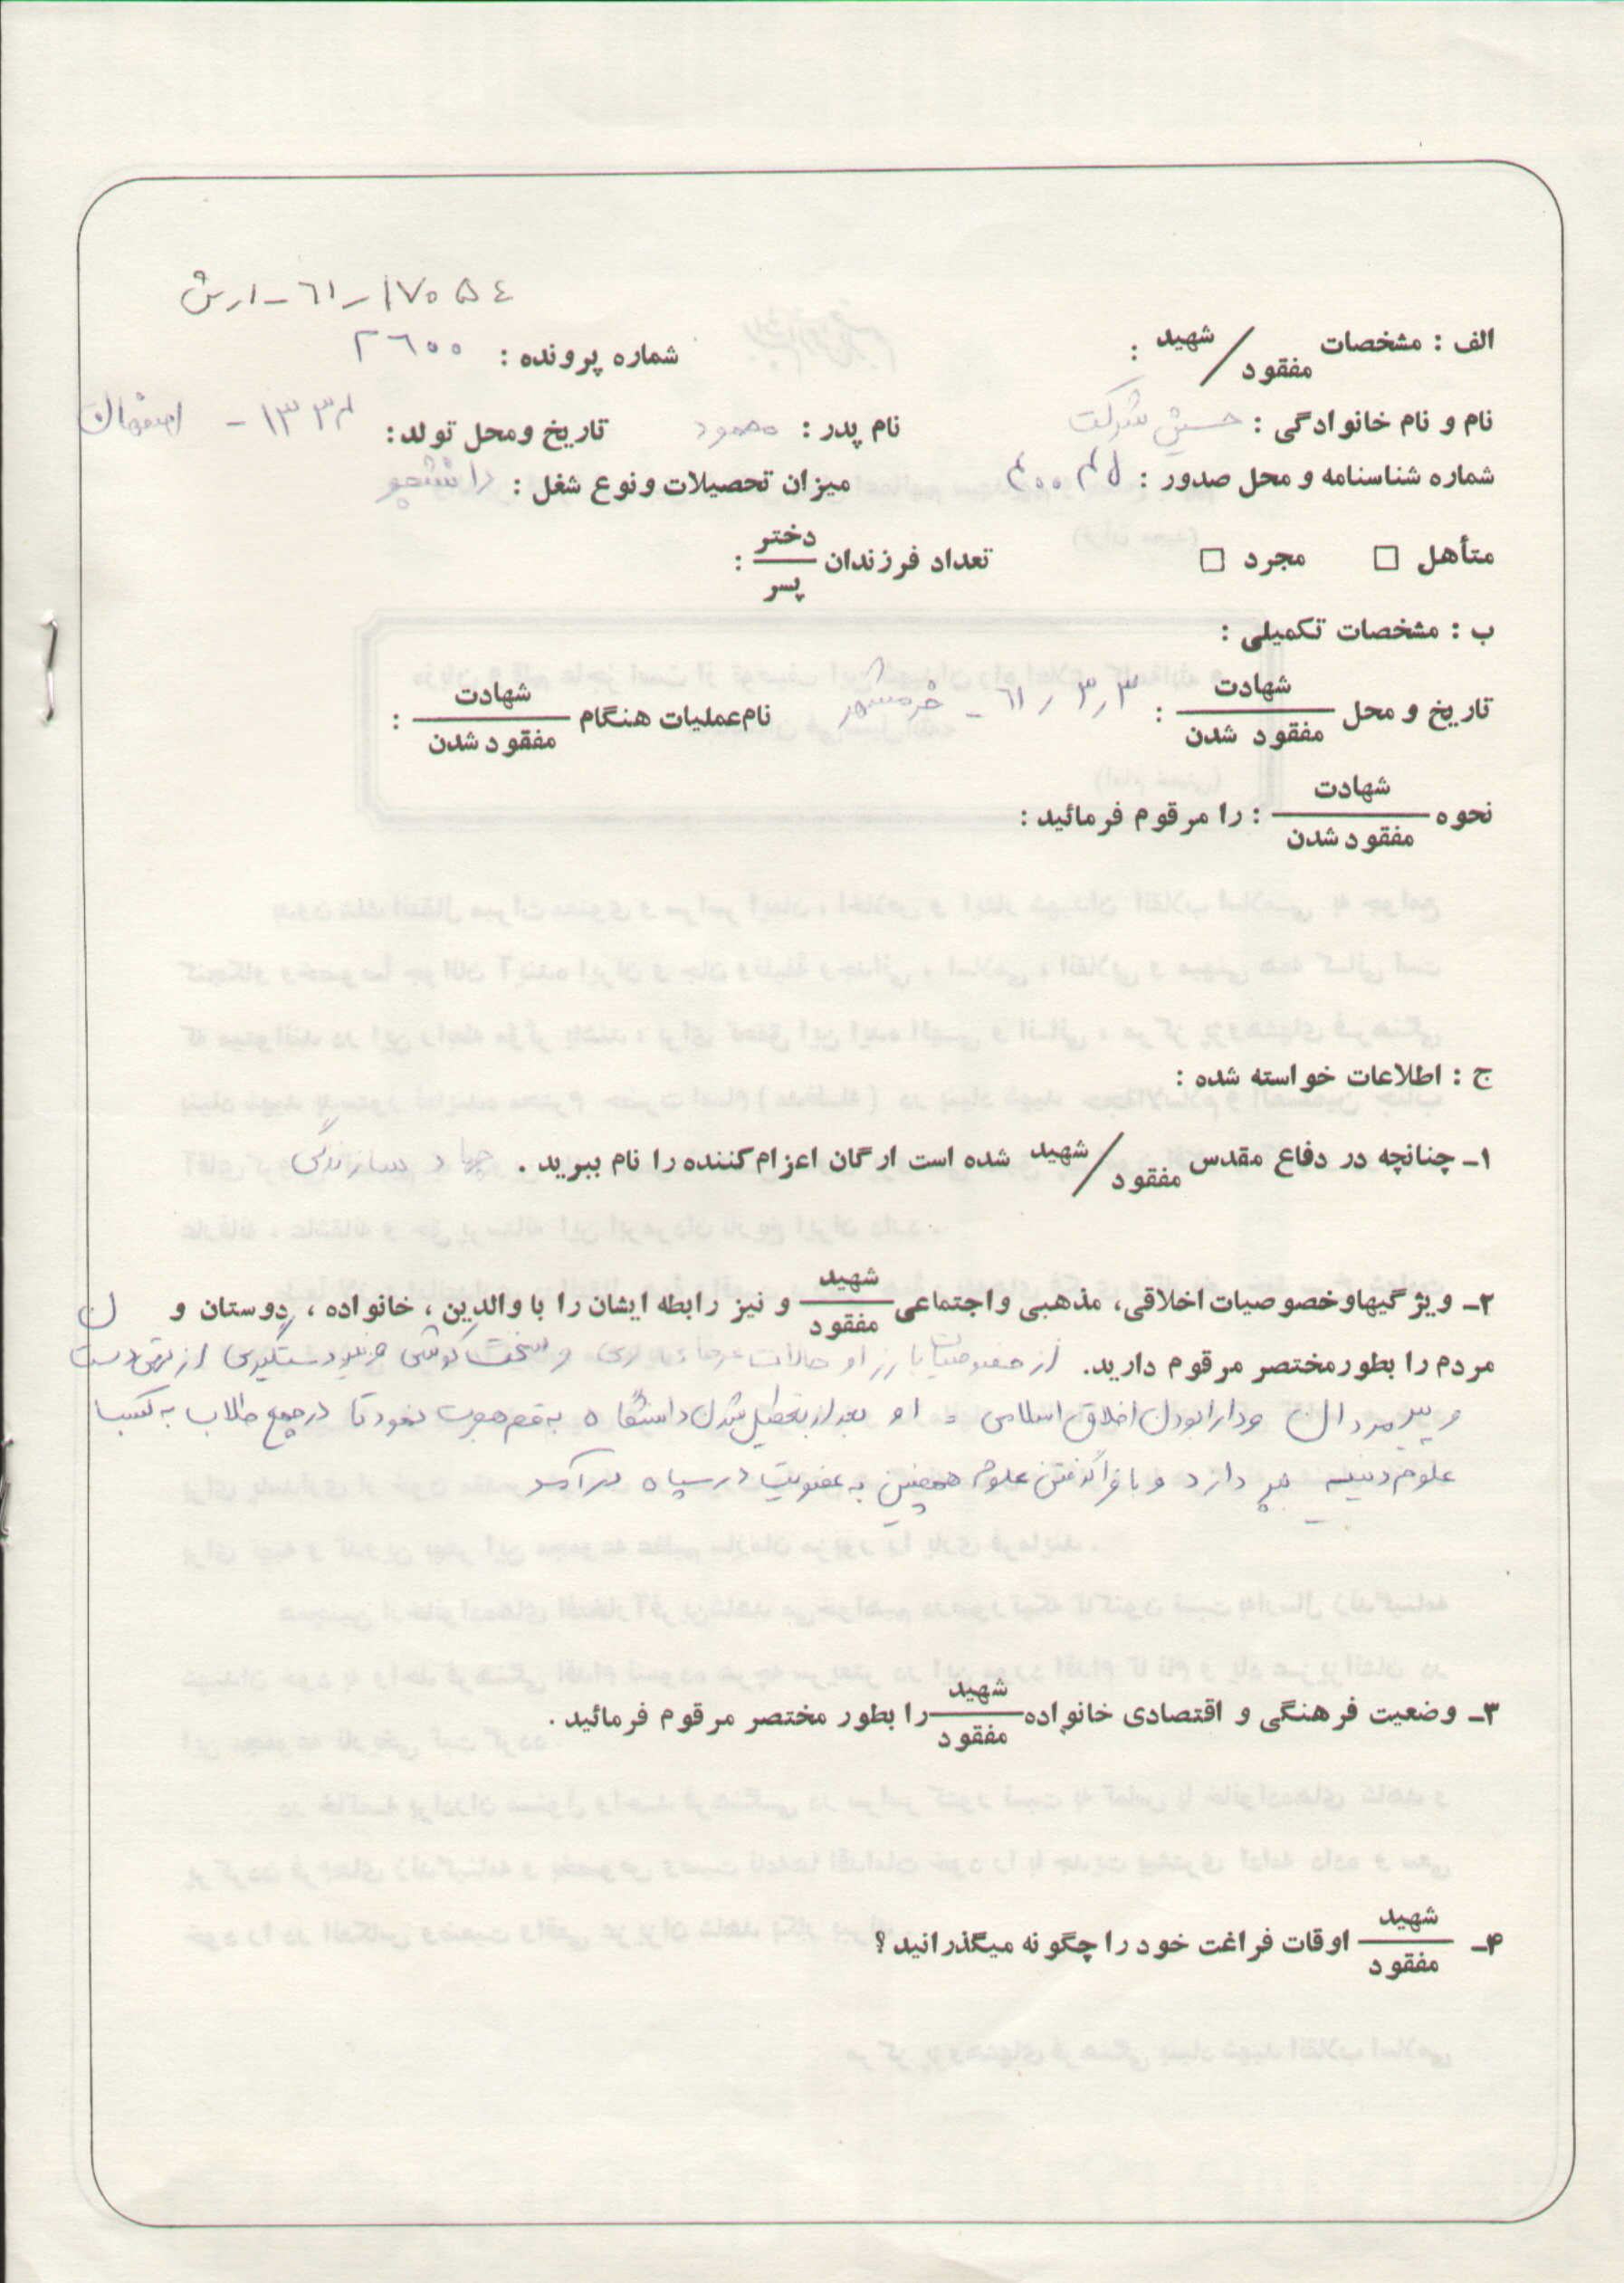 ۱۷۰۵۴-۶۱-ارش
الف : مشخصات شهید/مفقود :
شماره پرونده : ۲۶۰۰
نام و نام خانوادگی : حسین شرکت
نام پدر : محمود
تاریخ ومحل تولد: ۱۳۳۴ - اصفهان
شماره شناسنامه و محل صدور :
میزان تحصیلات ونوع شغل : دانشجو
متأهل □ مجرد □ تعداد فرزندان دختر/پسر :
ب : مشخصات تکمیلی :
تاریخ و محل شهادت/مفقود شدن : ۳ر۳ر۶۱ - خرمشهر
نام‌عملیات هنگام شهادت/مفقود شدن :
نحوه شهادت/مفقود شدن : را مرقوم فرمائید :
ج : اطلاعات خواسته شده :
۱ـ چنانچه در دفاع مقدس شهید/مفقود شده است ارگان اعزام‌کننده را نام ببرید . جهاد سازندگی
۲ـ ویژگیهاوخصوصیات اخلاقی، مذهبی واجتماعی شهید/مفقود و نیز رابطه ایشان را با والدین، خانواده ، دوستان و
مردم را بطورمختصر مرقوم دارید. از خصوصیات بارز او حالات و سخت کوشی دستگیری از تهی‌دستان
و پیرمردان ودارابودن اخلاق اسلامی - او بعد از تعطیل شدن دانشگاه به قم هجرت نمود تا در جمع طلاب به کسب
علوم دینیه بپردازد و با فراگرفتن علوم همچنین به عضویت در سپاه درآمد
۳ـ وضعیت فرهنگی و اقتصادی خانواده شهید/مفقود را بطور مختصر مرقوم فرمائید .
۴ـ شهید/مفقود اوقات فراغت خود را چگونه میگذرانید ؟